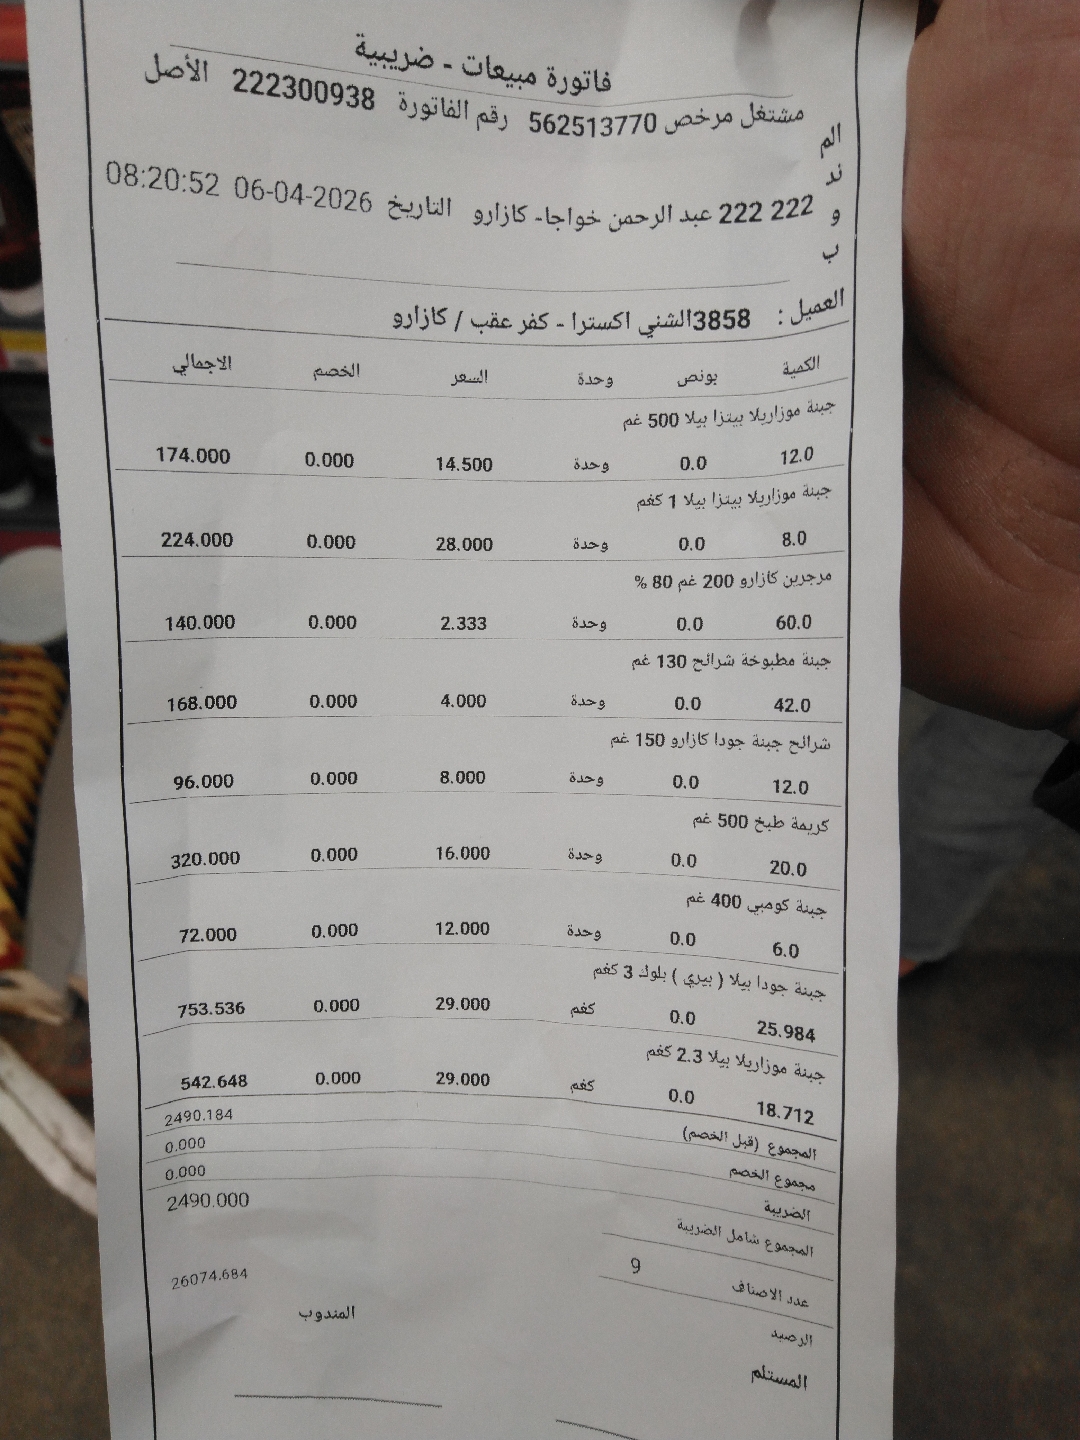 فاتورة مبيعات - ضريبية
مشتغل مرخص 562513770 رقم الفاتورة 222300938 الأصل
المندوب 222 222 عبد الرحمن خواجا- كازارو التاريخ 06-04-2026 08:20:52
العميل : 3858الشني اكسترا - كفر عقب / كازارو
الكمية بونص وحدة السعر الخصم الاجمالي
جبنة موزاريلا بيتزا بيلا 500 غم
12.0 0.0 وحدة 14.500 0.000 174.000
جبنة موزاريلا بيتزا بيلا 1 كغم
8.0 0.0 وحدة 28.000 0.000 224.000
مرجرين كازارو 200 غم 80 %
60.0 0.0 وحدة 2.333 0.000 140.000
جبنة مطبوخة شرائح 130 غم
42.0 0.0 وحدة 4.000 0.000 168.000
شرائح جبنة جودا كازارو 150 غم
12.0 0.0 وحدة 8.000 0.000 96.000
كريمة طبخ 500 غم
20.0 0.0 وحدة 16.000 0.000 320.000
جبنة كومبي 400 غم
6.0 0.0 وحدة 12.000 0.000 72.000
جبنة جودا بيلا ( بيري ) بلوك 3 كغم
25.984 0.0 كغم 29.000 0.000 753.536
جبنة موزاريلا بيلا 2.3 كغم
18.712 0.0 كغم 29.000 0.000 542.648
المجموع (قبل الخصم) 2490.184
مجموع الخصم 0.000
الضريبة 0.000
المجموع شامل الضريبة 2490.000
عدد الاصناف 9
الرصيد 26074.684
المستلم المندوب